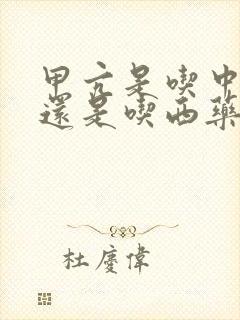 甲亢是喫中
還是喫西藥
杜慶偉